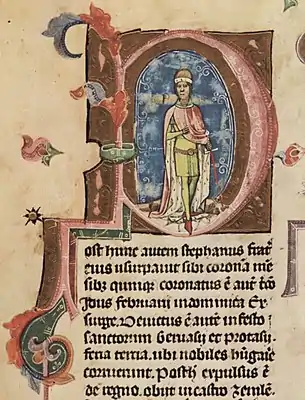 Post hunc autem stephanus frat̄
eius usurpauit sibi coronā mē
sibȝ quinqȝ coronatus ē aut̄ t̄cō
ydus februarij in dominica Ex
surge. Deuictus ē aūt in festo
sanctorum Geruasij et protasij
feria tercia. ubi nobiles hūgaie
corruerunt. Posth̄ expulsus ē
de regno. obijt in castro zemlē.